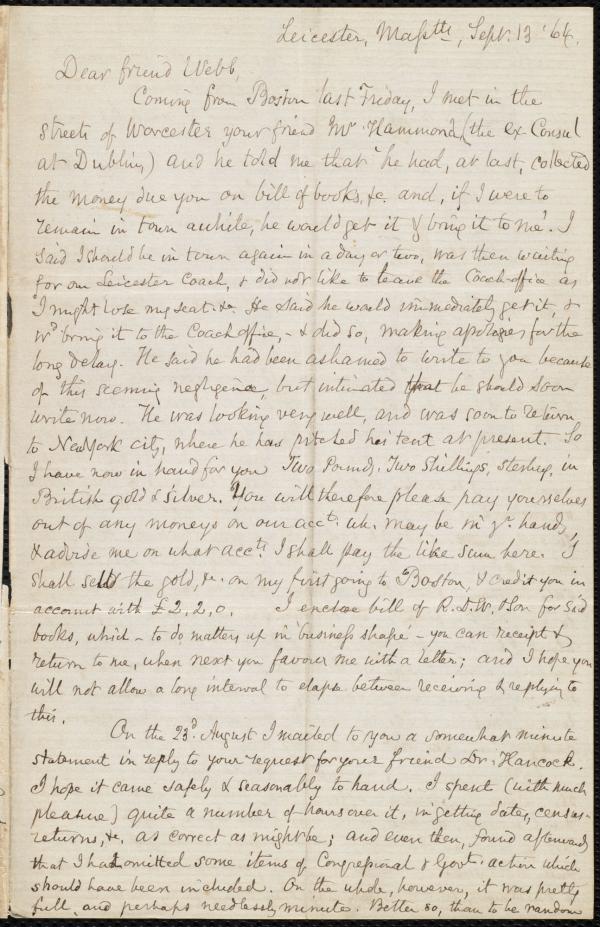 Leicester, Masstts, Sept. 13 '64.
Dear friend Webb,
Coming from Boston last Friday, I met in the
streets of Worcester your friend Mr Hammond (the ex-Consul
at Dublin) and he told me that he had, at last, collected
the money due you on bill of books, &c. and, if I were to
remain in town awhile, he would get it & bring it to me. I
said I should be in town again in a day or two, was then waiting
for our Leicester Coach, & did not like to leave the Coach-office as
I might lose my seat. &c. He said he would immediately get it, &
wd bring it to the Coach office, - & did so, making apologies for the
long delay. He said he had been ashamed to write to you because
of this seeming negligence, but intimated that he should soon
write now. He was looking very well, and was soon to return
to New York city, where he has pitched his tent at present. So
I have now in hand for you Two Pounds, Two Shillings, sterling, in
British gold & silver. You will therefore please pay yourselves
out of any moneys on our acct. wh. may be in yr. hands,
& advise me on what acct. I shall pay the like sum here. I
shall sell the gold, &c. on my first going to Boston, & credit you in
account with £2, 2, 0. I enclose bill of R.D.W. & Son for said
books, which - to do matters up in business shape - you can receipt &
return to me, when next you favour me with a letter; and I hope you
will not allow a long interval to elapse between receiving & replying to
this.
On the 23d August I mailed to you a somewhat minute
statement in reply to your request for your friend Dr. Hancock.
I hope it came safely & seasonably to hand. I spent (with much
pleasure) quite a number of hours over it, in getting dates, census-
returns, &c. as correct as might be; and even then, found afterwards
that I had omitted some items of Congressional & Govt. action which
should have been included. On the whole, however, it was pretty
full, and perhaps needlessly minute. Better so, than to be random